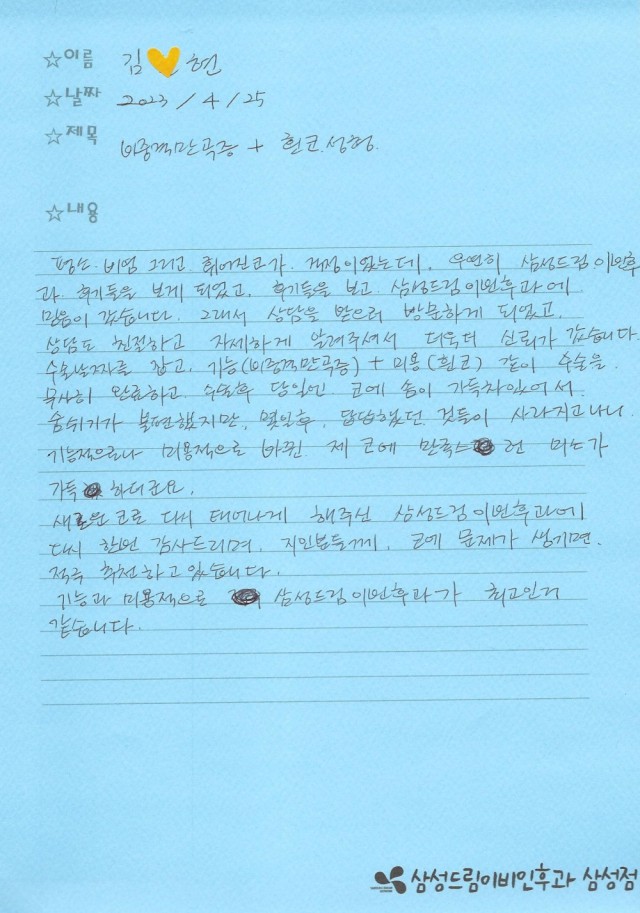 ☆이름 김 현
☆날짜 2023 / 4 / 25
☆제목 비중격만곡증 + 휜코.성형.
☆내용
평소. 비염 그리고 휘어진코가. 걱정이였는데, 우연히 삼성드림이비인후
과 후기들을 보게 되었고, 후기들을 보고 삼성드림이비인후과에
믿음이 갔습니다. 그래서 상담을 받으러 방문하게 되었고,
상담도 친절하고 자세하게 알려주셔서 더욱더 신뢰가 갔습니다.
수술날짜를 잡고, 기능(비중격만곡증) + 미용(휜코) 같이 수술을
무사히 완료하고. 수술후 당일엔 코에 솜이 가득차있어서
숨쉬기가 불편했지만, 몇일후, 답답했던 것들이 사라지고나니.
기능적으로나 미용적으로 바뀐 제 코에 만족스 런 미소가
가득 하더군요.
새로운 코로 다시 태어나게 해주신 삼성드림이비인후과에
다시 한번 감사드리며, 지인분들께, 코에 문제가 생기면.
적극 추천하고 있습니다.
기능과 미용적으로 삼성드림이비인후과가 최고인거
같습니다.
삼성드림이비인후과 삼성점